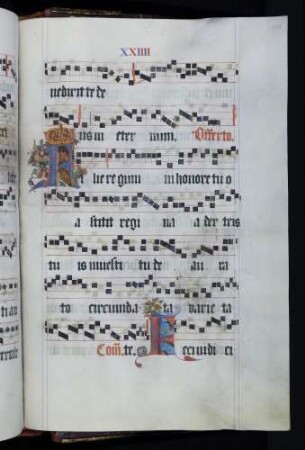 XXIIII
nedixit te de
us in eter num. Offerto.
ie regum in honore tu o
a stitit regi na a dex tris
tu is in vesti tu de au ra
to circunda ta varie ta
te. Com̄. F eci iudi ci